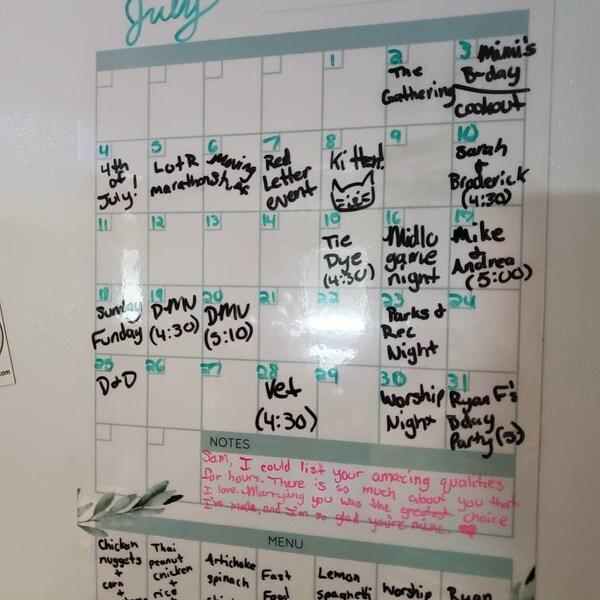 July
1
2
The
Gathering
3 Mimi's
B-day
cookout
4
4th
of
July!
5
LotR
marathon
6
Moving
7
Red
Letter
event
8
Kitten!
9
10
Sarah
&
Broderick
(4:30)
11
12
13
14
15
Tie
Dye
(4:30)
16
Midlo
game
night
17
Mike
&
Andrea
(5:00)
18
Sunday
Funday
19
DMV
(4:30)
20
DMV
(5:10)
21
22
23
Parks &
Rec
Night
24
25
D&D
26
27
28
Vet
(4:30)
29
30
Worship
Night
31
Ryan F's
Bday
Party (5)
NOTES
Sam, I could list your amazing qualities
for hours. There is so much about you that
I love. Marrying you was the greatest choice
I've made, and I'm so glad you're mine.
MENU
Chicken
nuggets
+
corn
+
Thai
peanut
chicken
+
rice
Artichoke
spinach
Fast
Food
Lemon
spaghetti
Worship
Ryan